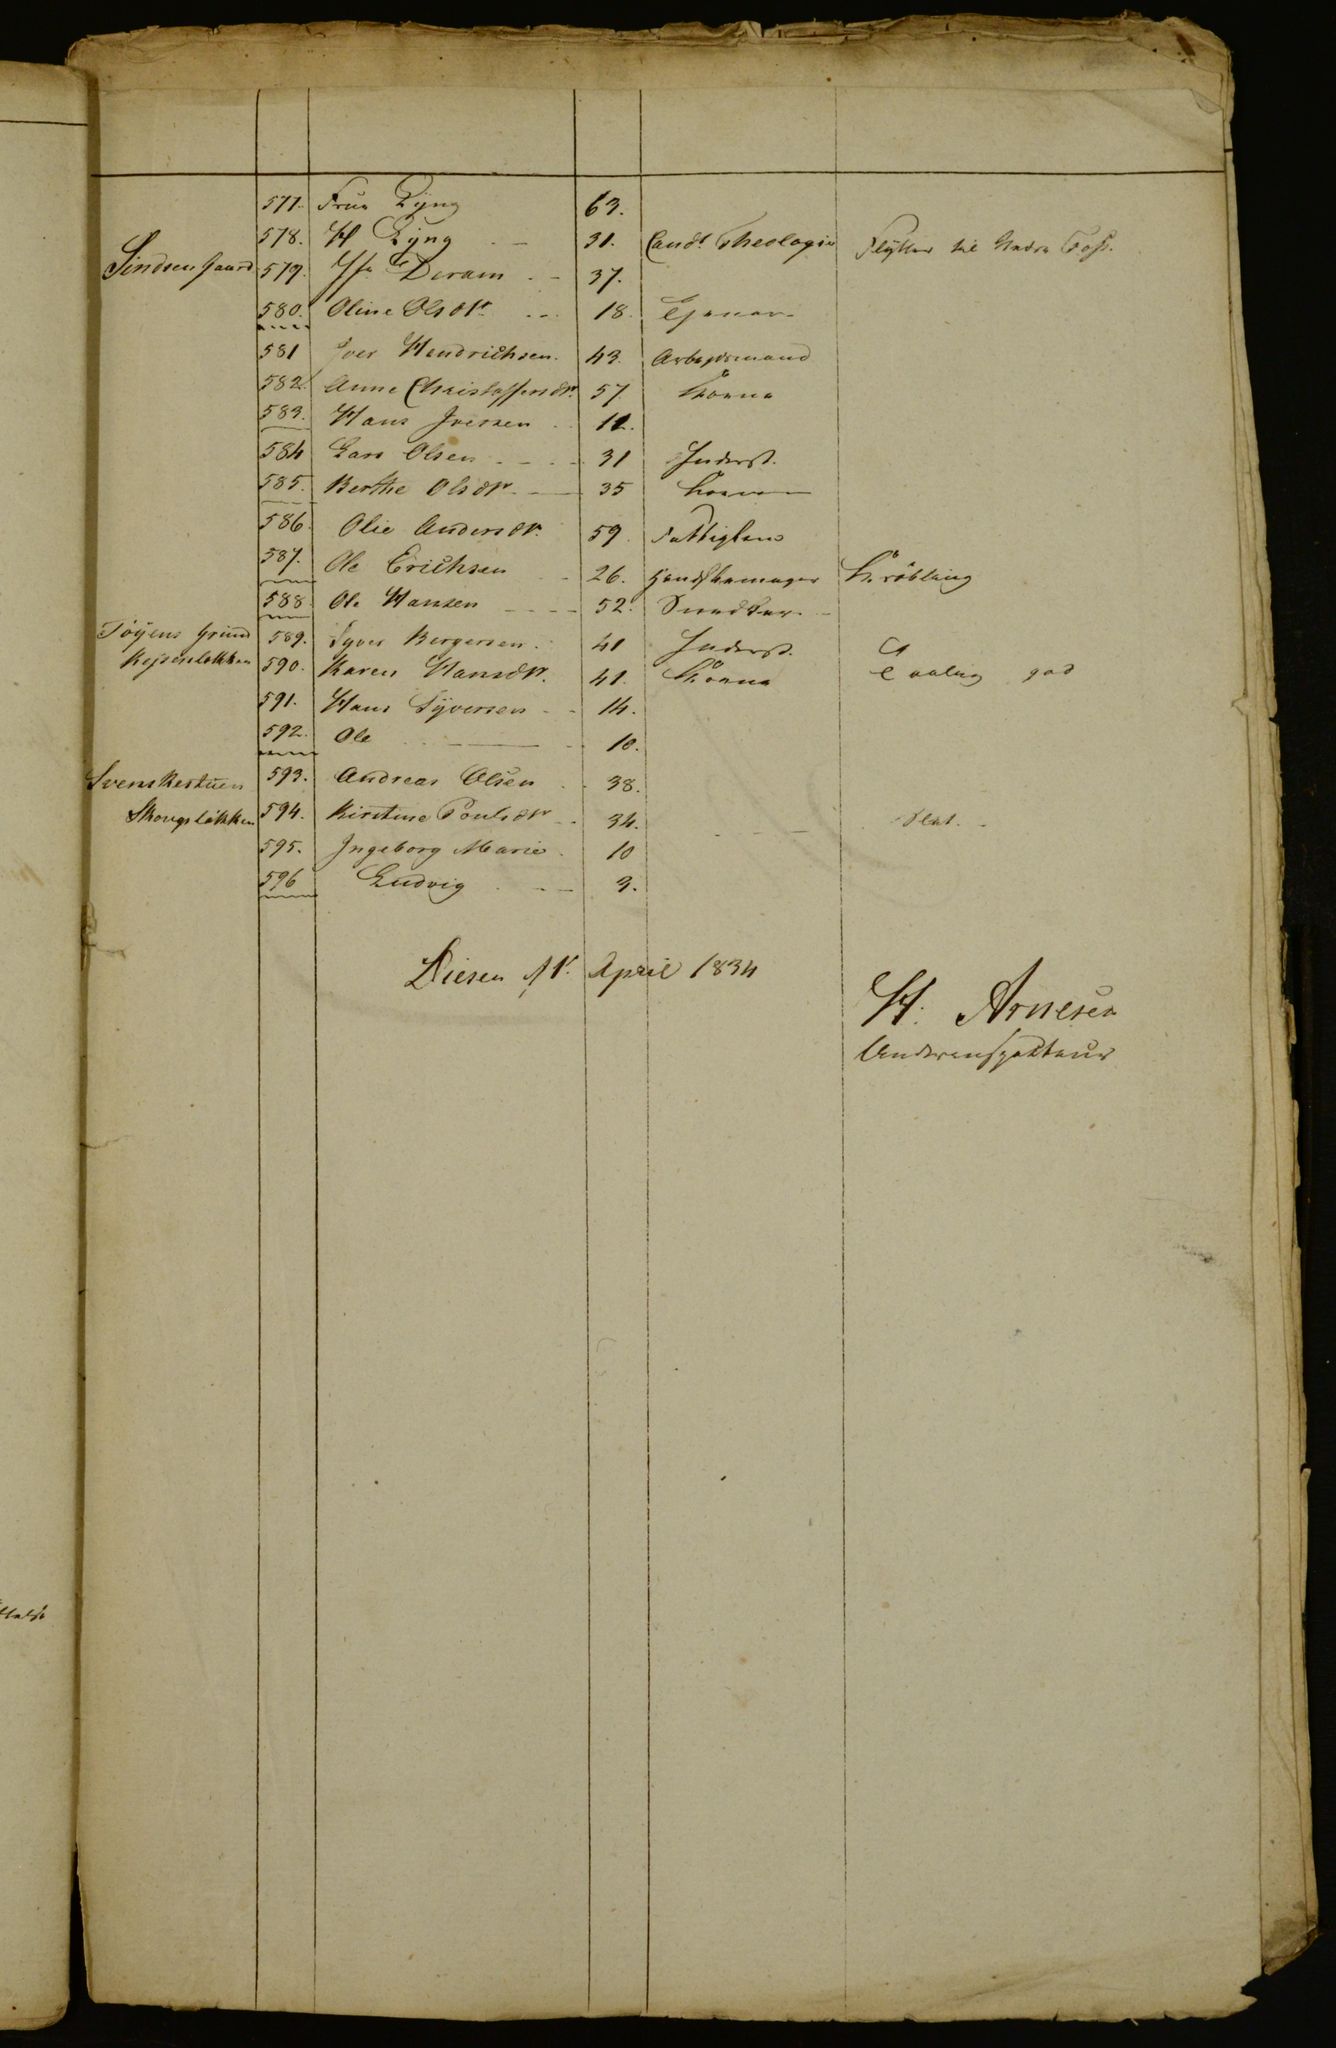 577. Frue Lyng 63.
578. H Lyng 31. Cand: Theologie Flytter til Nedre Foss.
Sindsen Gaard 579. Jfr Deram 37.
580. Oline Olsdtr 18. Tjener
581 Iver Hendrichsen. 43. Arbejdsmand
582. Anne Christoffersdtr. 57. Kone
583. Hans Iversen 12.
584 Lars Olsen 31 Inderst.
585. Berthe Olsdtr 35 Kone
586. Olie Andersdtr. 59 Fattiglem
587. Ole Erichsen 26. Handskemager Krøbling
588. Ole Hansen 52. Snedker
Töyens Grund 589. Syver Bergersen. 41 Inderst.
Kejserløkken 590. Karen Hansdtr. 41. Kone Daarlig god
591. Hans Syversen 14.
592. Ole 10.
Svenskestuen 593. Andreas Olsen 38.
Skougsløkken 594. Kirstine Poulsdtr 34.
595. Ingeborg Marie 10
596 Ludvig 3.
Diesen April 1834
H. Arnesen
Underinspecteur